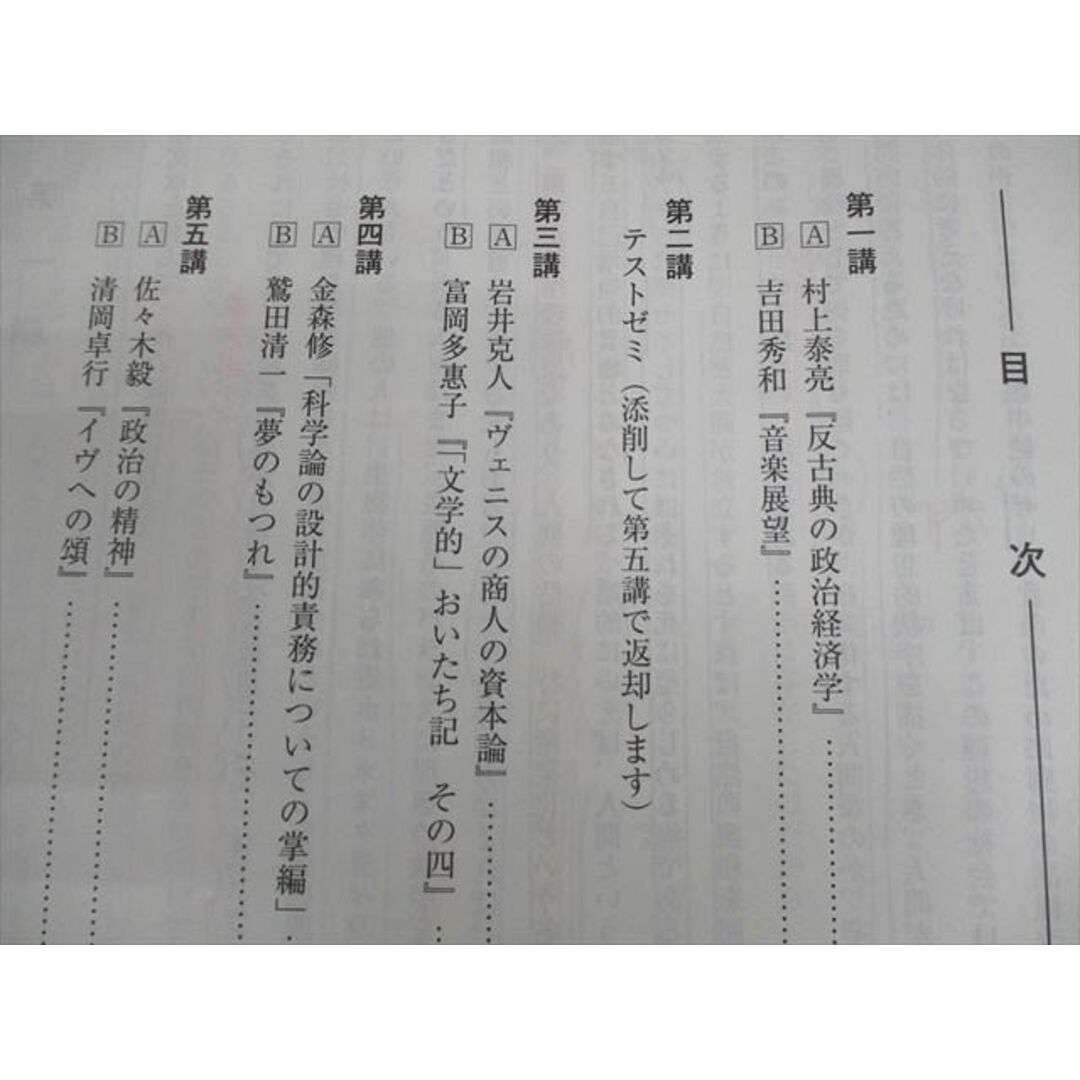 目次
第一講
A 村上泰亮『反古典の政治経済学』
B 吉田秀和『音楽展望』
第二講
テストゼミ（添削して第五講で返却します）
第三講
A 岩井克人『ヴェニスの商人の資本論』
B 富岡多惠子『「文学的」おいたち記 その四』
第四講
A 金森修「科学論の設計的責務についての掌編」
B 鷲田清一『夢のもつれ』
第五講
A 佐々木毅『政治の精神』
B 清岡卓行『イヴへの頌』